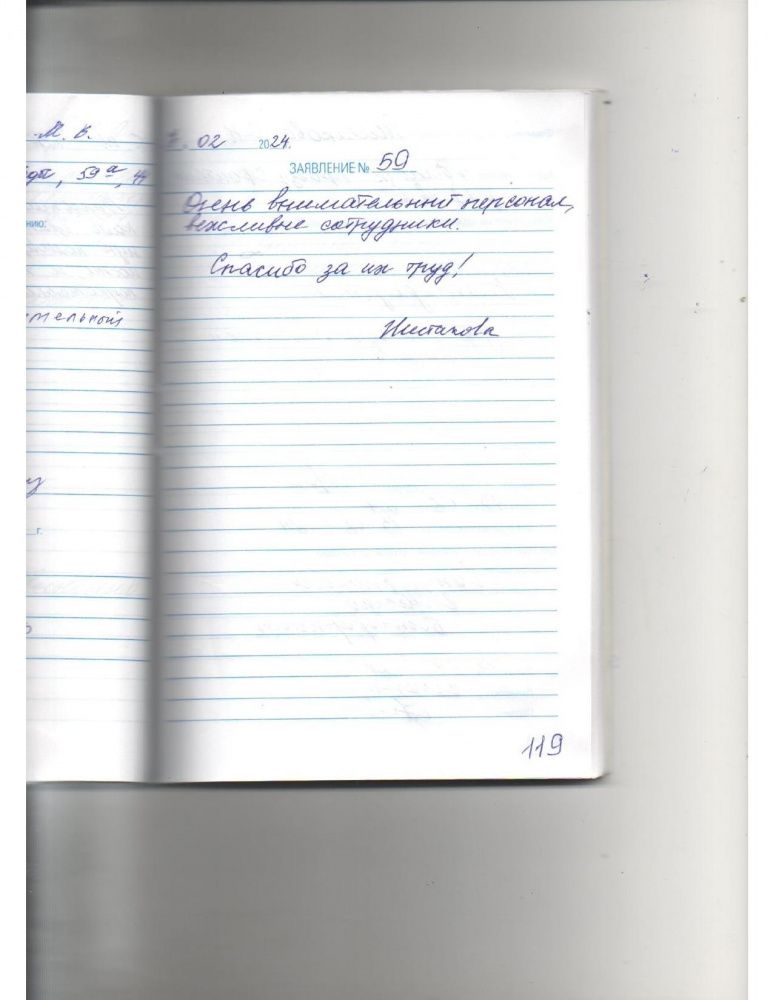 М. В.
59а, 44
нию:
ительный
г.
02 2024.
ЗАЯВЛЕНИЕ № 59
Очень внимательный персонал,
вежливые сотрудники.
Спасибо за их труд!
119